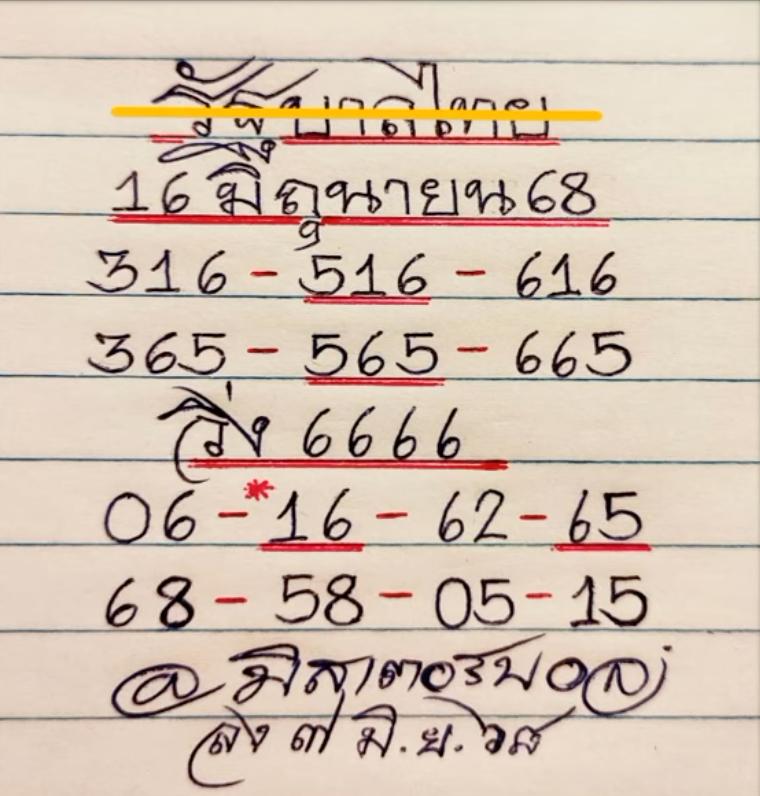 รัฐบาลไทย
16 มิถุนายน 68
316 - 516 - 616
365 - 565 - 665
วิ่ง 6666
06 - *16 - 62 - 65
68 - 58 - 05 - 15
@ มิสเตอร์
มิ.ย.